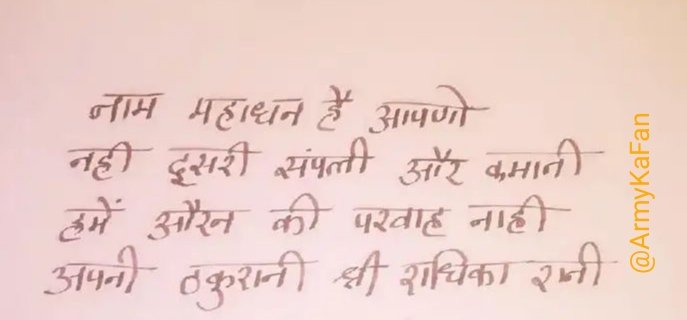 नाम महाधन है आपणो
नही दूसरी संपत्ती और कमानी
हमें औरन की परवाह नाही
अपनी ठकुरानी श्री राधिका रानी
@ArmyKaFan